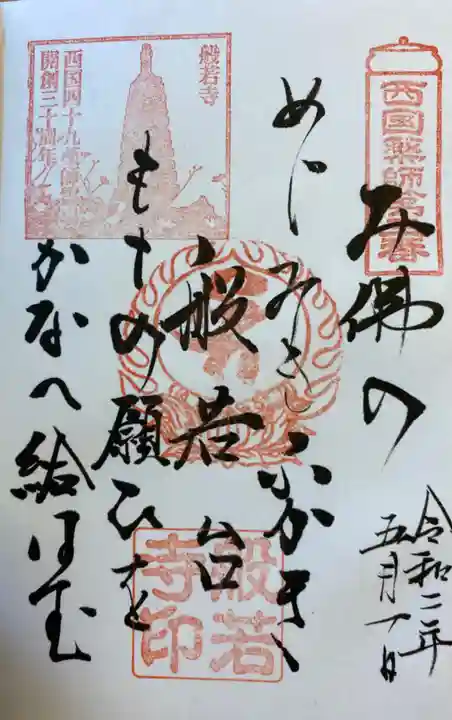 西国薬師第三番
み佛の
ふかき
般若台
の願ひを
かなへ給はむ
令和二年
五月一日
般若寺
西国四十九薬師霊場
開創三十周年
般若
寺印